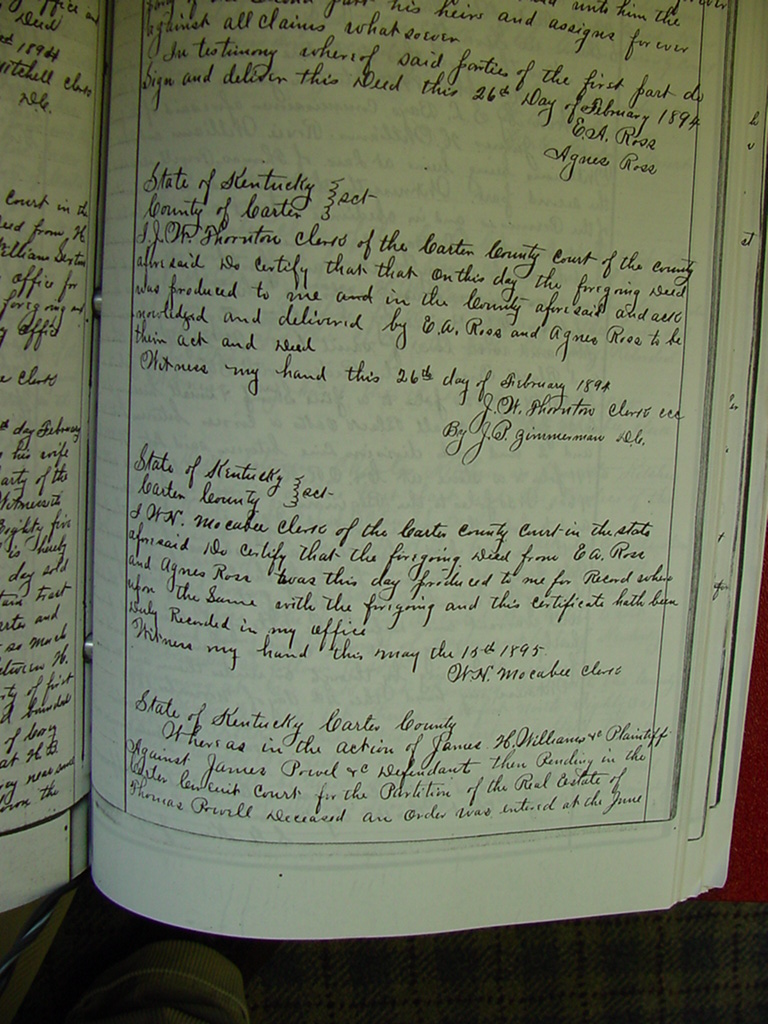 office in
Deed
1894
Mitchell Clerk
D.C.
Court in the
Deed from H
William
office for
foregoing and
office
Clerk
day February
his wife
arty of the
Witnesseth
Eighty five
is hereby
day sold
tain tract
arter and
so much
etween H.
rty of first
d bounded
of
at H.B.
ey near
the
party of the Second part his heirs and assigns forever
against all claims what soever
In testimony whereof said parties of the first part do
Sign and deliver this Deed this 26th Day of February 1894
E.A. Ross
Agnes Ross
State of Kentucky } sct
County of Carter }
I J.W. Thornton Clerk of the Carter County Court of the County
aforesaid Do Certify that that on this day the foregoing Deed
was produced to me and in the County aforesaid and ack
nowledged and delivered by E.A. Ross and Agnes Ross to be
their act and Deed
Witness my hand this 26th day of February 1894
J.W. Thornton Clerk ccc
By J.P. Zimmerman D.C.
State of Kentucky } sct
Carter County }
I W.N. Mocabee Clerk of the Carter County Court in the state
aforesaid Do Certify that the foregoing Deed from E A. Ross
and Agnes Ross was this day produced to me for Record where
upon the Same with the foregoing and this Certificate hath been
Duly Recorded in my office
Witness my hand this May the 15th 1895
W.N. Mocabee Clerk
State of Kentucky Carter County
Whereas in the action of James H. Williams &c Plaintiff
Against James Powel &c Defendant then Pending in the
Carter Circuit Court for the Partition of the Real Estate of
Thomas Powell Deceased an Order was entered at the June